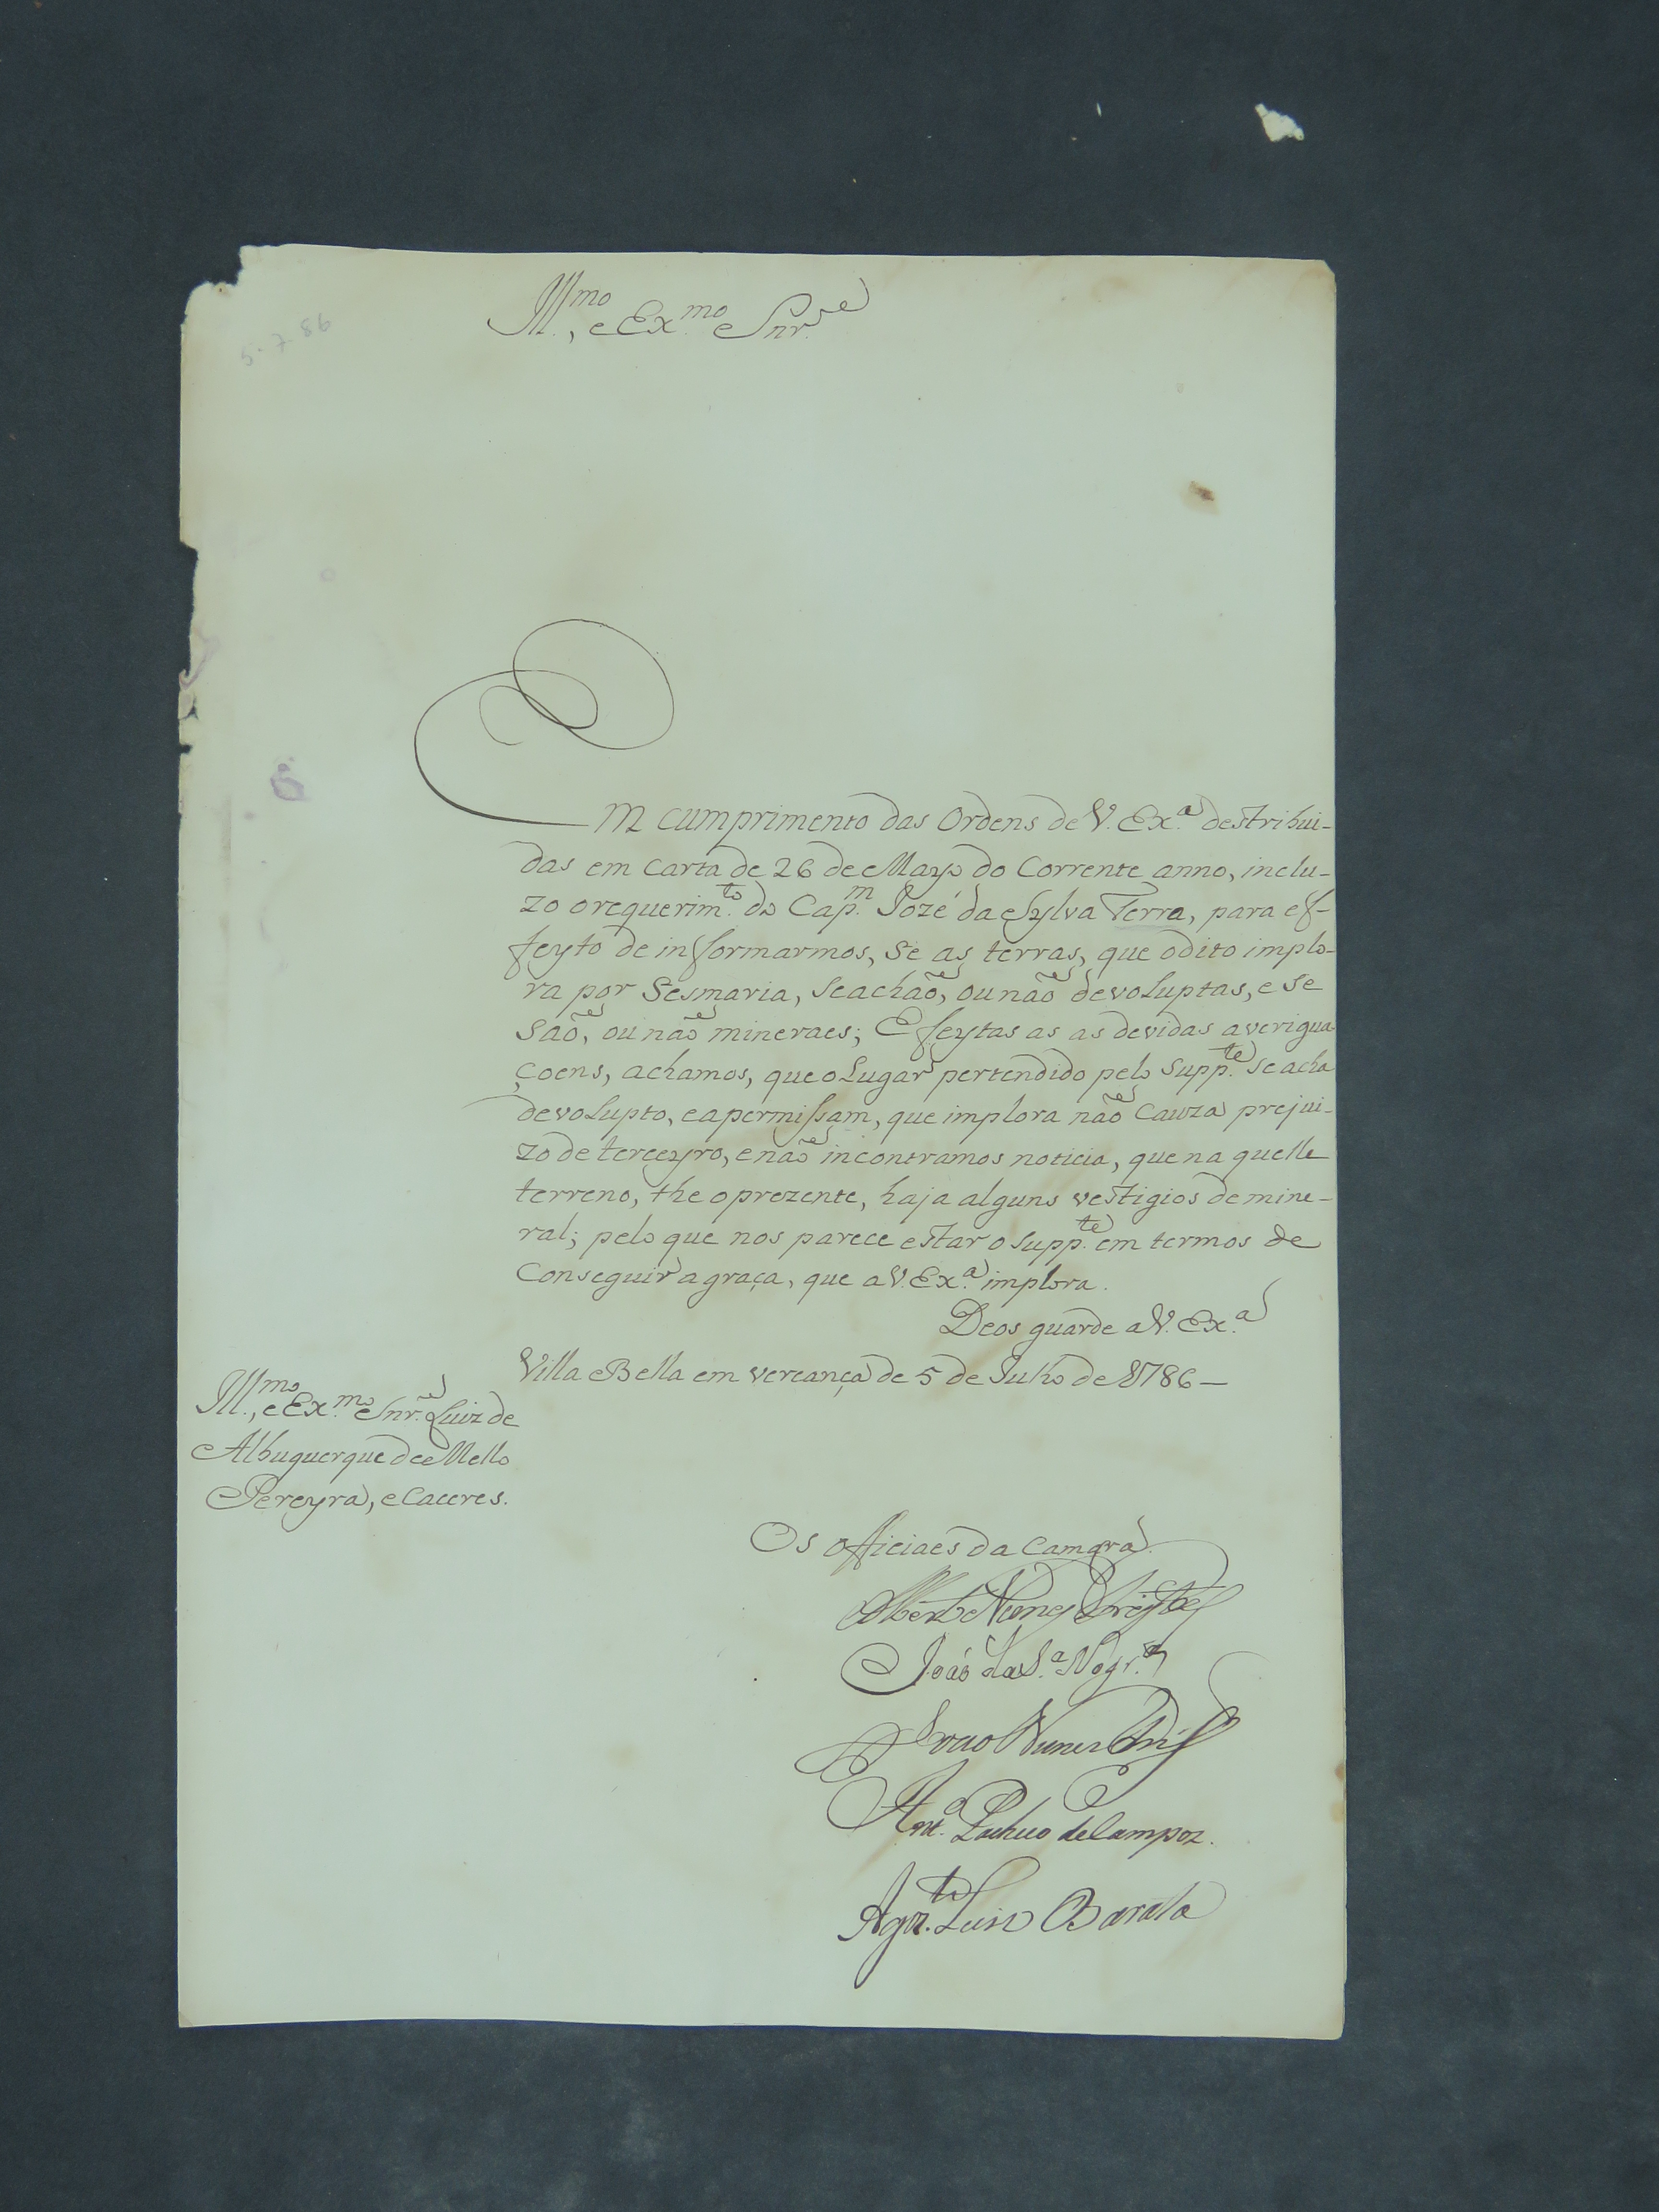 5-7-86
Ill.mo, e Ex.mo Snr.e
Em cumprimento das Ordens de V. Ex.a destribui-
das em carta de 26 de Mayo do Corrente anno, inclu-
zo orequerim.to do Cap.m Jozé da Sylva Terra, para ef-
feyto de informarmos, se as terras, que odito implo-
ra por Sesmaria, seachão, ounão devoluptas, e se
são, ou não mineraes; E feytas as as devidas averigua
çoens, achamos, que o Lugar pertendido pelo Supp.te se acha
devolupto, eapermissam, que implora não Cauza prejui-
zo de terceyro, enão incontramos noticia, que na quelle
terreno, the oprezente, haja alguns vestigios de mine-
ral; pelo que nos parece estar o Supp.te em termos de
Conseguir agraça, que aV. Ex.a implora.
Deos guarde aV. Ex.a
Villa Bella em vereança de 5 de Julho de 1786—
Ill.mo, e Ex.mo Snr.e Luiz de
Albuquerque de Mello
Pereyra, e Caceres.
Os officiaes da Camara
Nunes
João da S.a Nogr.a
João Nunes
Ant.o Pacheco de Campoz.
Agos.to Luis Barata